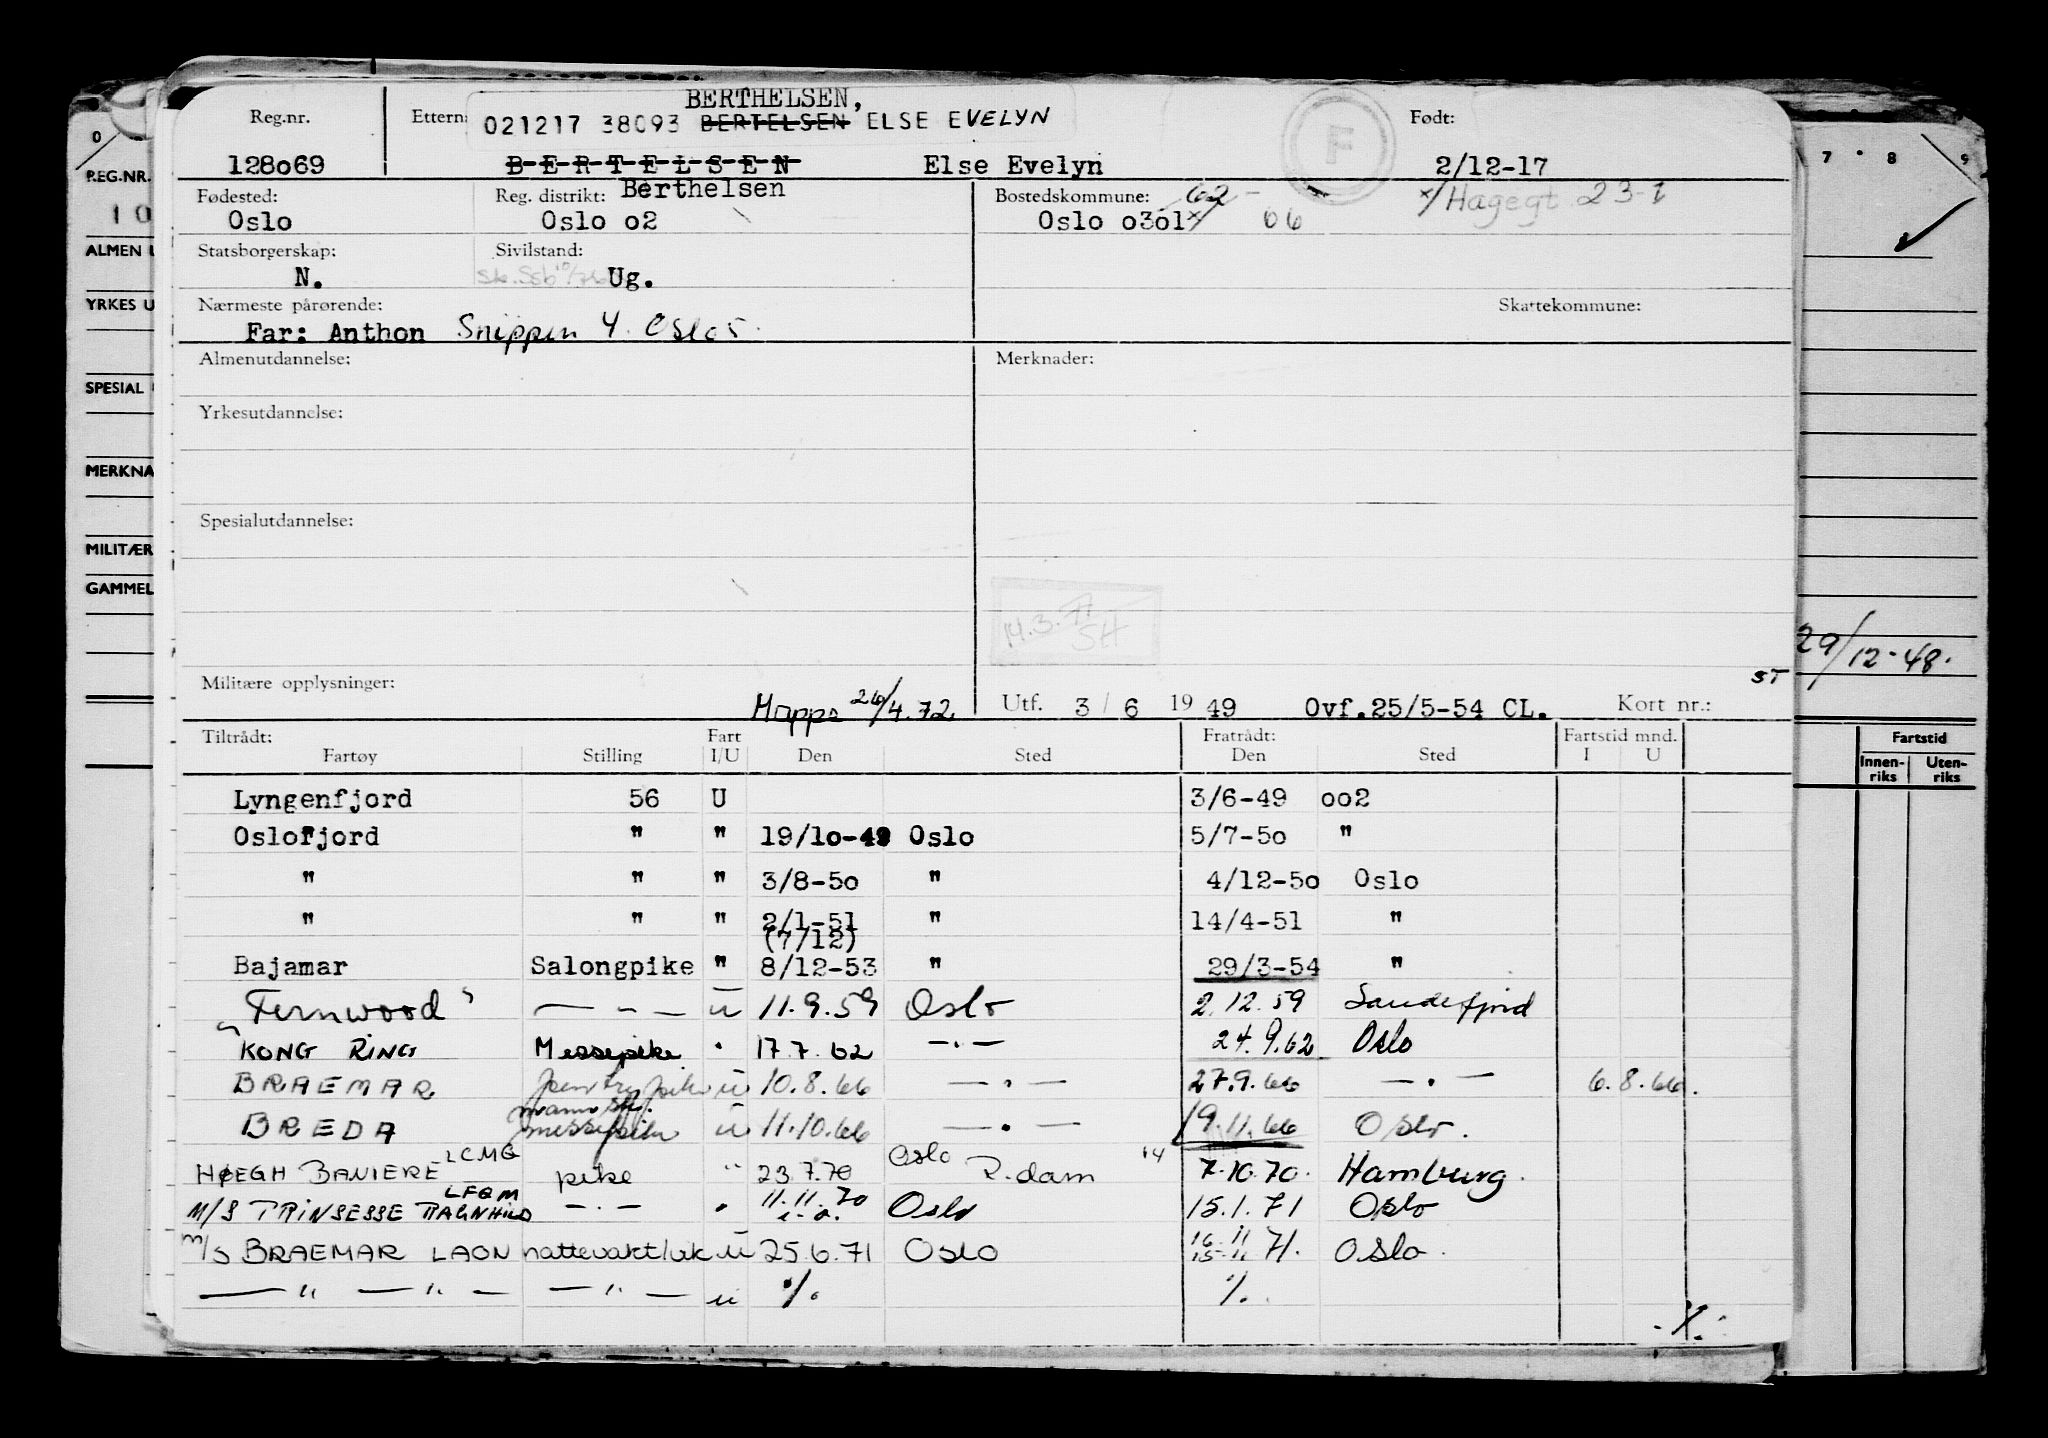 BERTHELSEN,
Reg.nr. Ettern: 021217 38093 BERTELSEN ELSE EVELYN F Født:
128o69 B-E-R-T-E-L-S-E-N Else Evelyn 2/12-17
Fødested: Reg. distrikt: Berthelsen Bostedskommune: 62 x/Hagegt 23-1
Oslo Oslo o2 Oslo o3o1x 06
Statsborgerskap: Sivilstand:
N. Ug.
Nærmeste pårørende: Skattekommune:
Far: Anthon Snippen 4. Oslo
Almenutdannelse: Merknader:
Yrkesutdannelse:
Spesialutdannelse:
14.3.71
SH
Militære opplysninger: ST
Mappe 26/4.72 Utf. 3/6 1949 Ovf.25/5-54 CL. Kort nr.:
Tiltrådt: Fart Fratrådt: Fartstid mnd.
Fartøy Stilling I/U Den Sted Den Sted I U
Lyngenfjord 56 U 3/6-49 oo2
Oslofjord " " 19/1o-49 Oslo 5/7-5o "
" " " 3/8-5o " 4/12-5o Oslo
" " " 2/1-51 " 14/4-51 "
(7/12)
Bajamar Salongpike " 8/12-53 " 29/3-54 "
"Fernwood" — " — u 11.9.59 Oslo 2.12.59 Sandefjord
KONG RING Messepike " 17.7.62 — " — 24.9.62 Oslo
BRAEMAR pentrypike u 10.8.66 — " — 27.9.66 — " — 6.8.66.
BREDA mannsk. messepike u 11.10.66 — " — 19.11.66 Oslo.
HØEGH BANIERE LCMG pike " 23.7.70 Oslo R.dam 7.10.70. Hamburg.
M/S PRINSESSE RAGNHILD LFQM — " — " 11.11.70 Oslo 15.1.71 Oslo
M/S BRAEMAR LAON nattevakt/uk u 25.6.71 Oslo 16.11 15.11 71. Oslo.
— " — " — — " — u %. %.
0
REG.NR.
10
ALMEN U
YRKES U
SPESIAL
MERKNA
MILITÆR
GAMMEL
7 8 9
29/12-48.
Fartstid
Innen-
riks
Uten-
riks